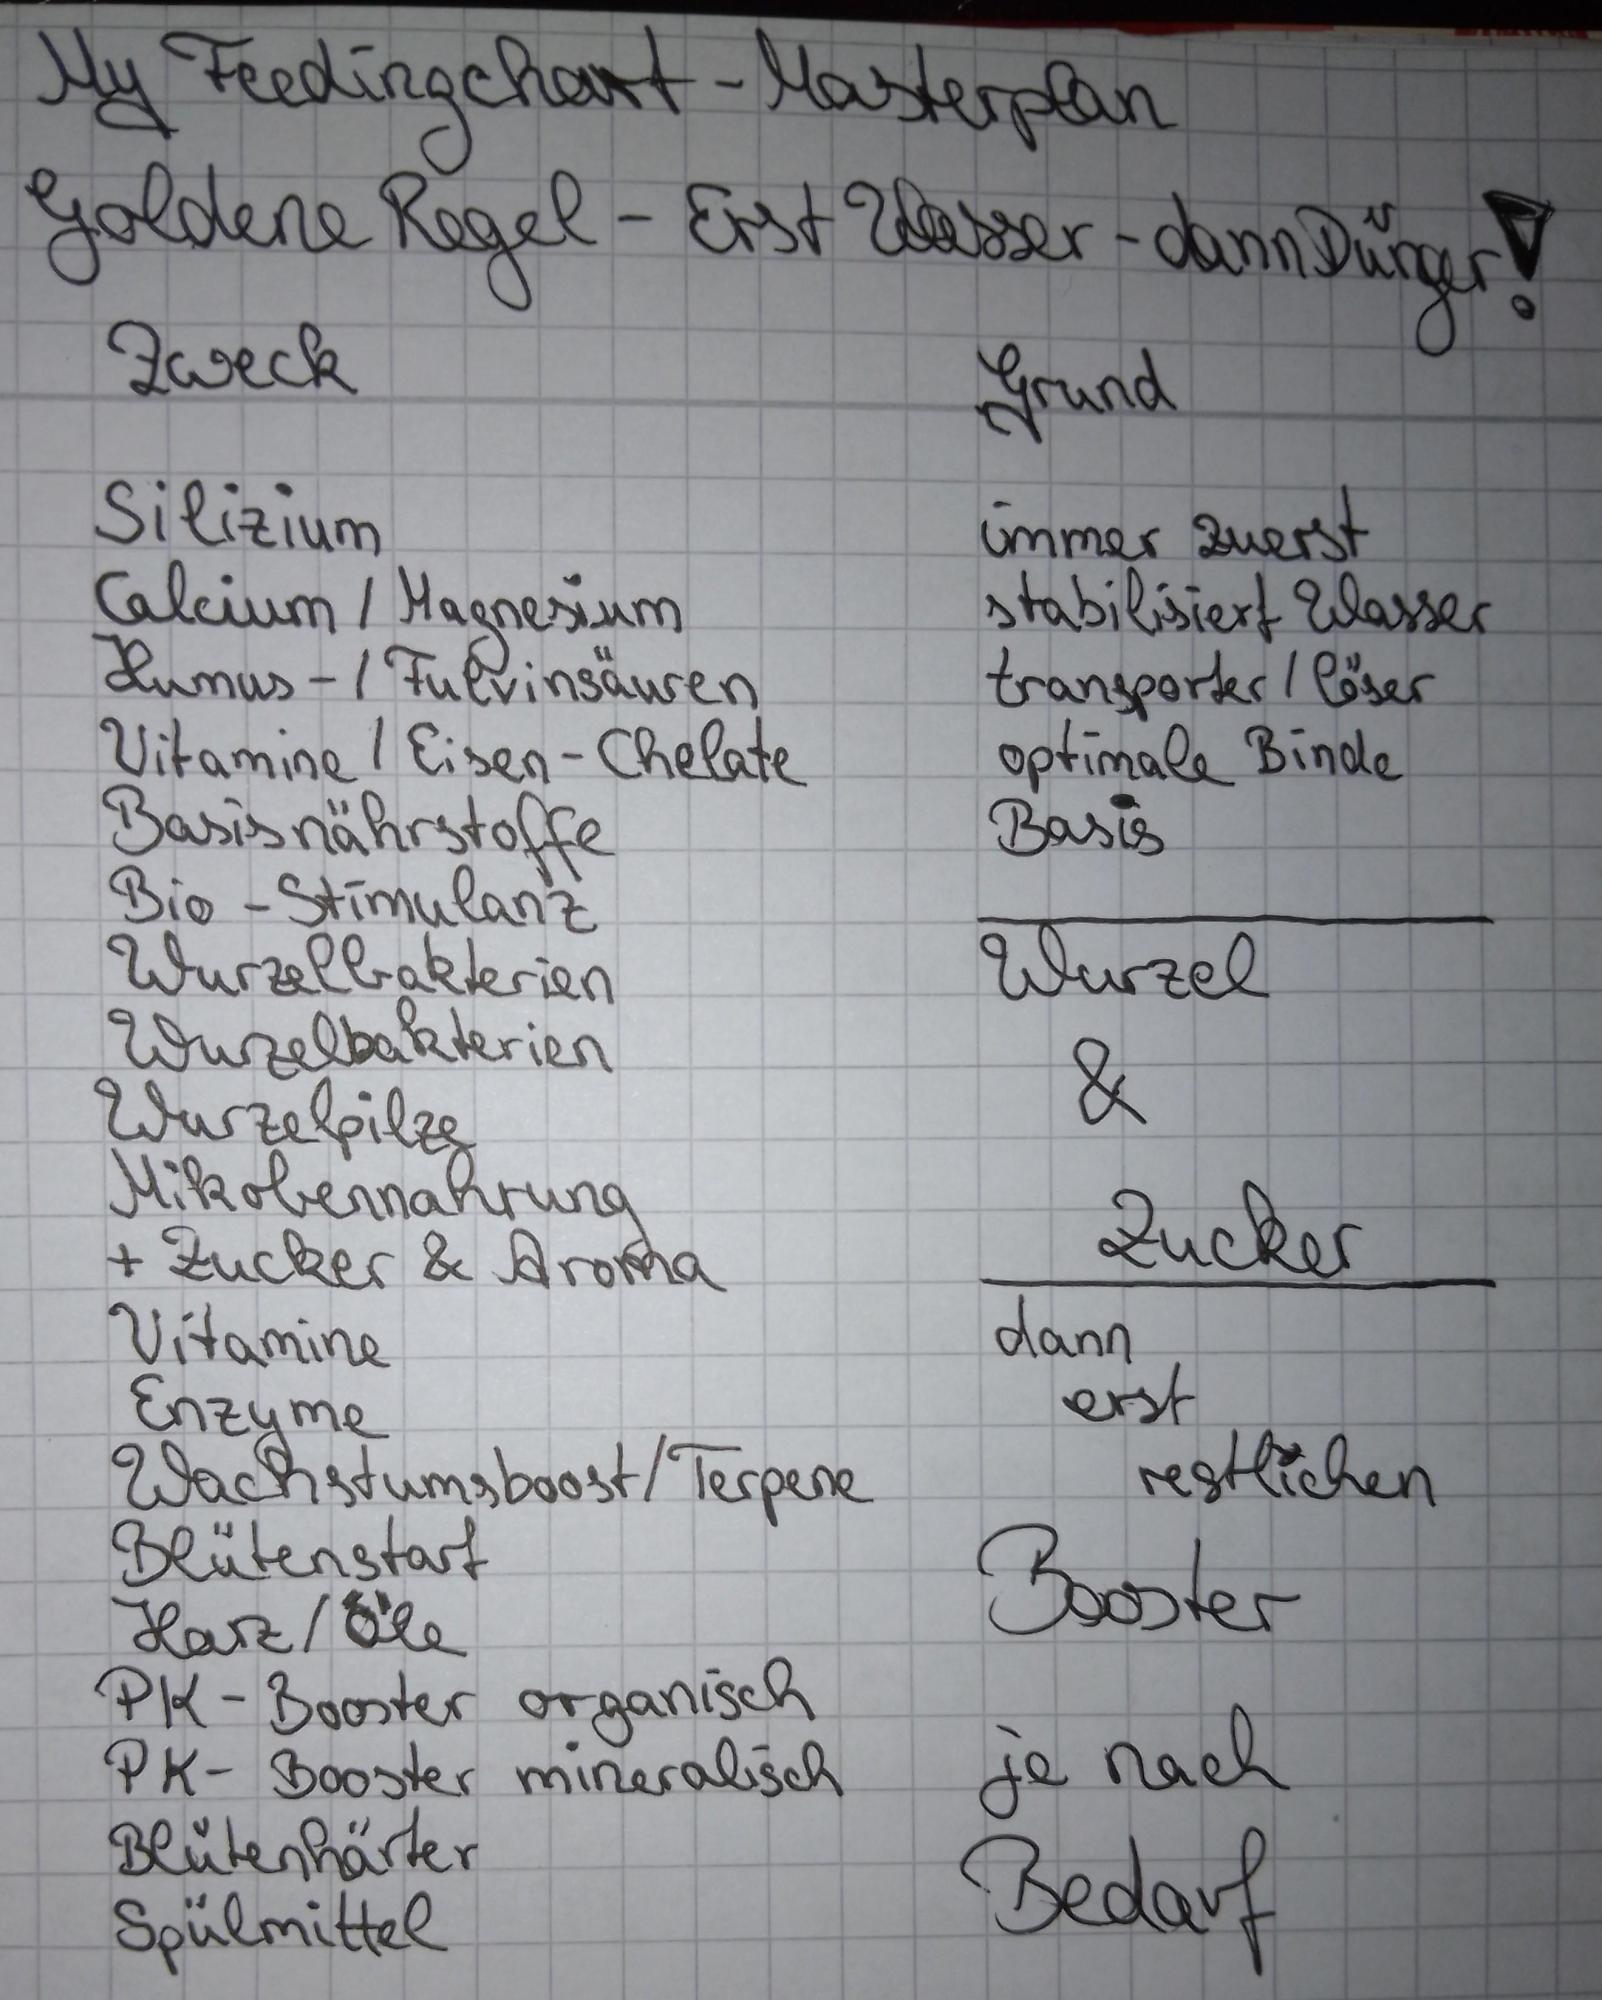 My Feedingchart - Masterplan
Goldene Regel - Erst Wasser - dann Dünger!
Zweck Grund
Silizium immer zuerst
Calcium / Magnesium stabilisiert Wasser
Humus - / Fulvinsäuren transporter / löser
Vitamine / Eisen - Chelate optimale Binde
Basisnährstoffe Basis
Bio - Stimulanz
Wurzelbakterien Wurzel
Wurzelbakterien &
Wurzelpilze
Mikobennahrung
+ Zucker & Aroma Zucker
Vitamine dann
Enzyme erst
Wachstumsboost / Terpene restlichen
Blütenstart
Harz / Öle Booster
PK - Booster organisch
PK - Booster mineralisch je nach
Blütenhärter
Spülmittel Bedarf